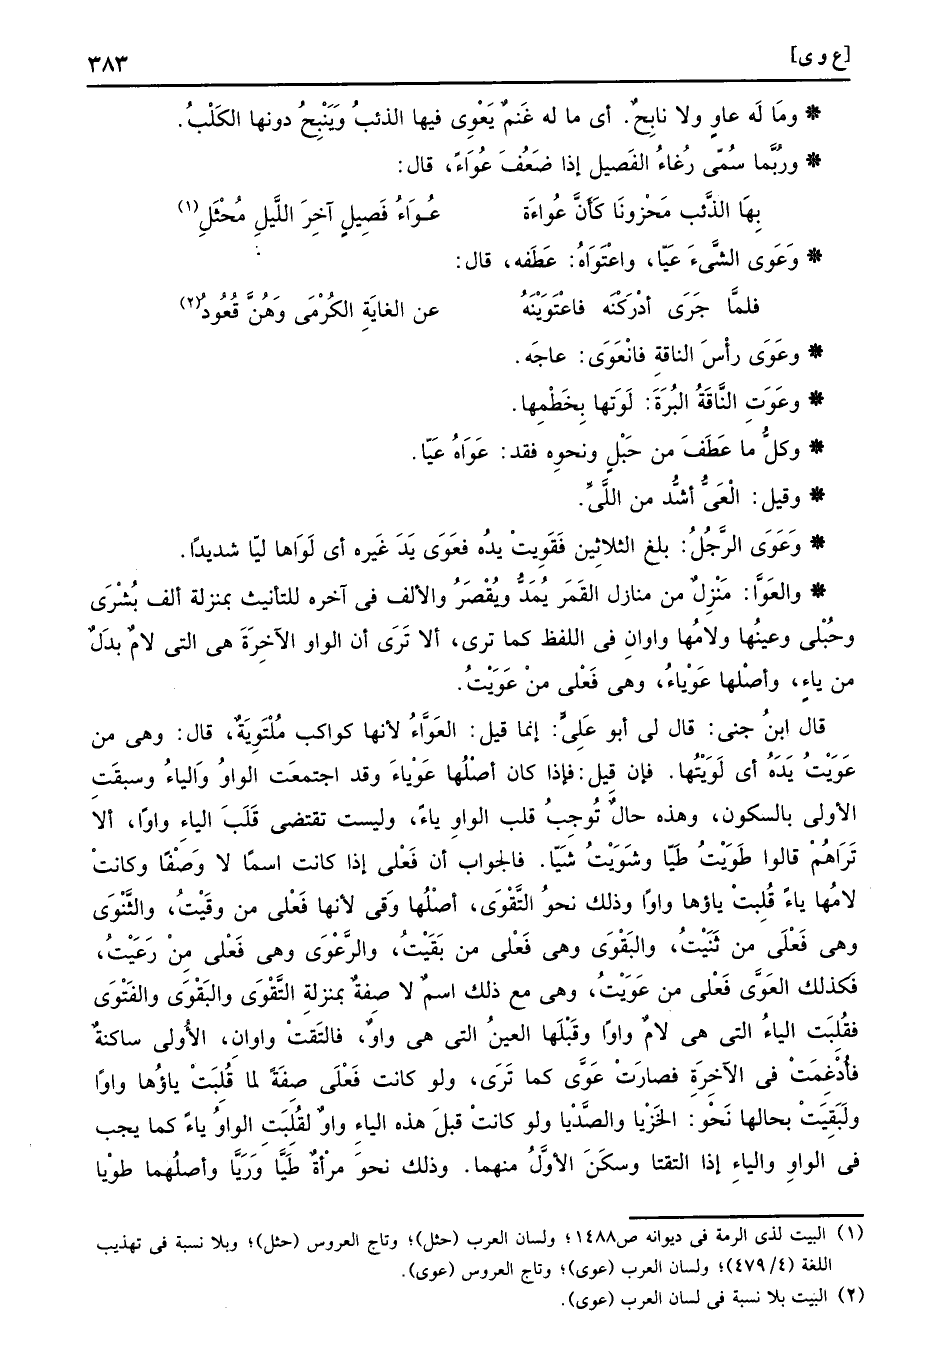 [ع و ى] ٣٨٣
* ومَا لَه عاوٍ ولا نابحٌ. أى ما له غَنمٌ يَعْوِى فيها الذئبُ ويَنْبِحُ دونها الكَلْبُ.
* ورُبَّما سُمّى رُغاءُ الفَصيل إذا ضَعُفَ عُوَاءً، قال:
بِهَا الذَّئب مَحْزونَا كَأنَّ عُواءَة عُـوَاءُ فَصِيلٍ آخرَ اللَّيلِ مُحْثَلِ(١)
* وَعَوى الشَّىءَ عَيّا، واعْتَوَاهُ: عَطَفه، قال:
فلمَّا جَرَى أدْرَكْنَه فاعْتَوَيْنَهُ عن الغايَةِ الكُرْمَى وَهُنَّ قُعُودُ(٢)
* وعَوَى رأْسَ الناقةِ فانْعَوَى: عاجَه.
* وعَوَتِ النَّاقَةُ البُرَةَ: لَوَتها بِخَطْمِها.
* وكلُّ ما عَطَفَ من حَبْلٍ ونحوِه فقد: عَوَاهُ عَيّا.
* وقيل: الْعَىُّ أشدُّ من اللَّىِّ.
* وَعَوَى الرَّجُلُ: بلغ الثلاثين فَقَوِيتْ يدُه فعَوَى يَدَ غَيره أى لَوَاها ليّا شديدًا.
* والعَوَّا: مَنْزِلٌ من منازل القَمَر يُمَدُّ ويُقْصَرُ والألف فى آخره للتأنيث بمنزلة ألف بُشْرَى
وحُبْلى وعينُها ولامُها واوان فى اللفظ كما ترى، ألا تَرَى أن الواو الآخِرَةَ هى التى لامٌ بدَلٌ
من ياءٍ، وأصْلها عَوْياءُ، وهى فَعْلى منْ عَوَيْتُ.
قال ابنُ جنى: قال لى أبو عَلىٍّ: إنما قيل: العَوَّاءُ لأنها كواكب مُلْتَوِيَةٌ، قال: وهى من
عَوَيْتُ يَدَهُ أى لَوَيْتُها. فإن قيل: فإذا كان أصْلُها عَوْياءَ وقد اجتمعَت الواوُ وَالياءُ وسبقَتِ
الأولى بالسكون، وهذه حالٌ تُوجبُ قلب الواوِ ياءً، وليست تقتضى قَلَبَ الياءِ واوًا، ألا
تَرَاهُمْ قالوا طَوَيْتُ طَيّا وشَوَيْتُ شَيّا. فالجواب أن فَعْلى إذا كانت اسمًا لا وَصْفًا وكانتْ
لامُها ياءً قُلبتْ ياؤها واوًا وذلك نحوُ التَّقْوَى، أصْلُها وقَى لأنها فَعْلى من وقَيْتُ، والثَّنْوَى
وهى فَعْلَى من ثَنَيْتُ، والبَقْوَى وهى فَعْلى من بَقَيْتُ، والرَّعْوَى وهى فَعْلى مِنْ رَعَيْتُ،
فكذلك العَوَّى فَعْلى من عَوَيْتُ، وهى مع ذلك اسمٌ لا صِفةٌ بمنزلة التَّقْوَى والبَقْوَى والفَتْوَى
فقُلبَت الياءُ التى هى لامٌ واوًا وقَبْلَها العينُ التى هى واوٌ، فالتَقتْ واوان، الأُولى ساكنةٌ
فأُدْغِمَتْ فى الآخِرَةِ فصارَتْ عَوَّى كما تَرَى، ولو كانت فَعْلَى صفَةً لما قُلِبَتْ ياؤُها واوًا
ولَبَقِيَتْ بحالها نَحْو: الخَزْيا والصَّدْيا ولو كانتْ قبلَ هذه الياء واوٌ لقُلبَتِ الواوُ ياءً كما يجب
فى الواوِ والياءِ إذا التقتا وسكَنَ الأوَّلُ منهما. وذلك نحوَ مرْأةٌ طَيَّا وَرَيَّا وأصلُهما طوْيا
(١) البيت لذى الرمة فى ديوانه ص١٤٨٨؛ ولسان العرب (حثل)؛ وتاج العروس (حثل)؛ وبلا نسبة فى تهذيب
اللغة (٤/٤٧٩)؛ ولسان العرب (عوى)؛ وتاج العروس (عوى).
(٢) البيت بلا نسبة فى لسان العرب (عوى).